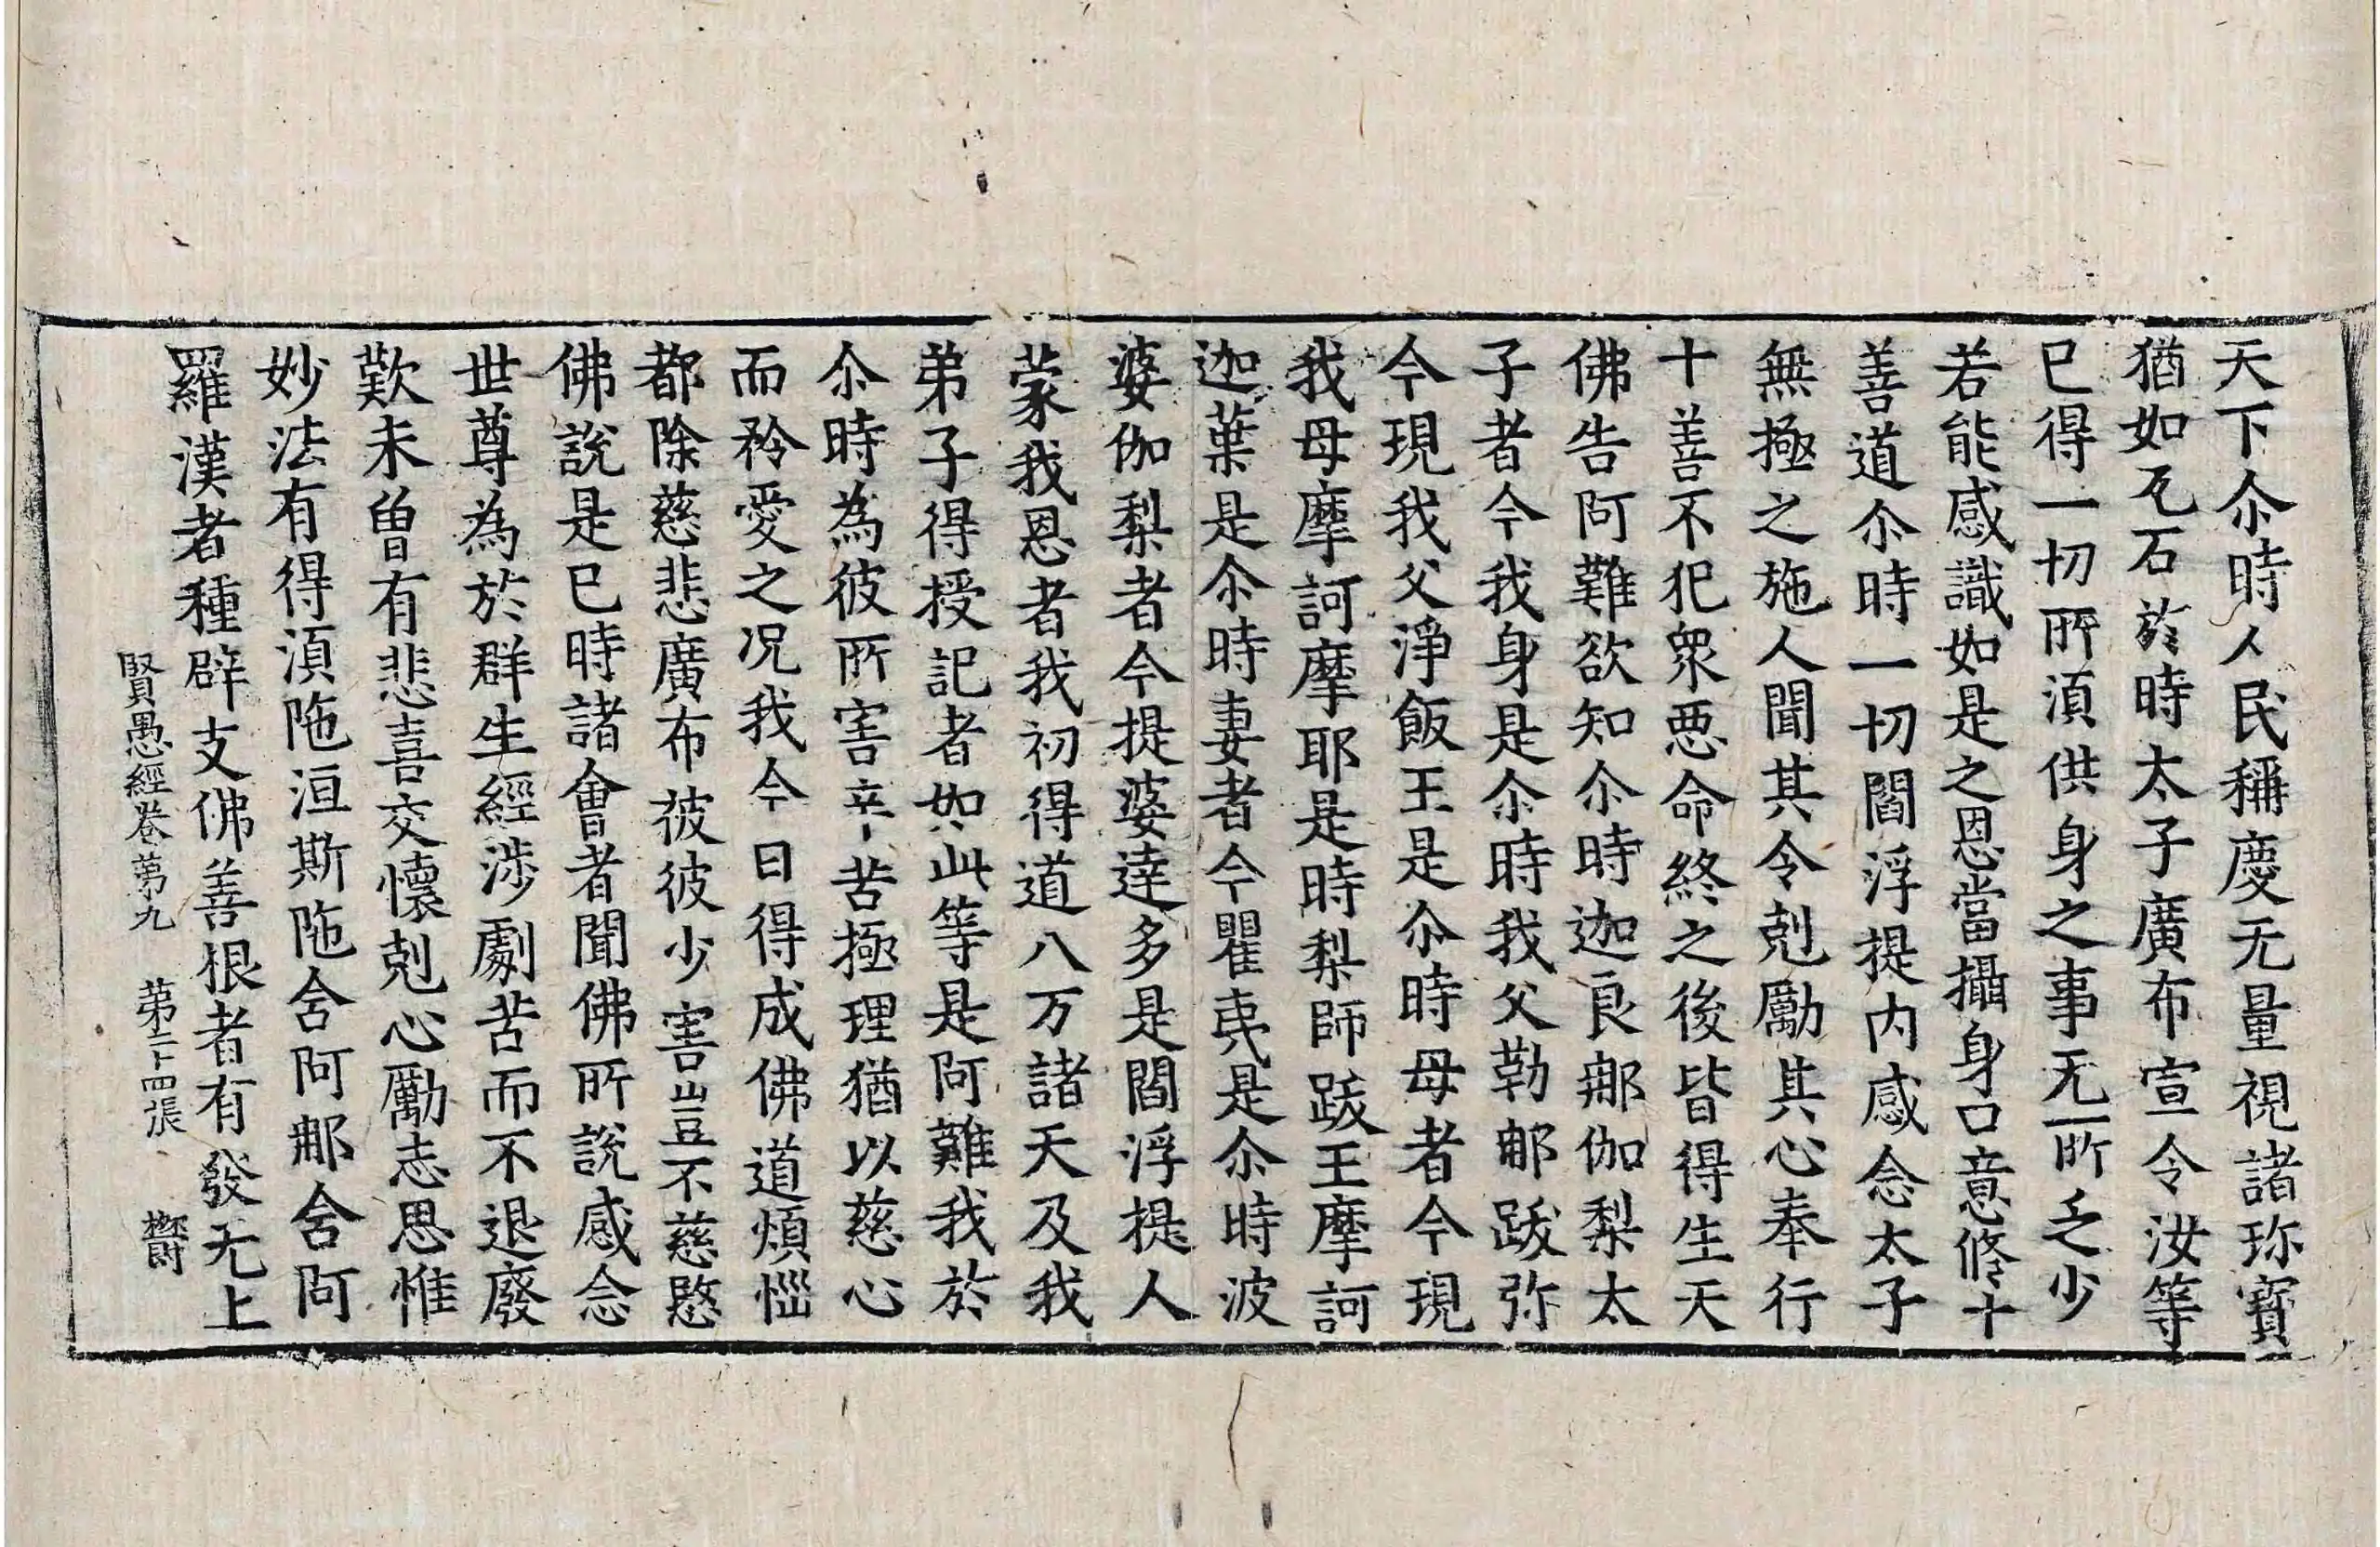 天下尒時人民稱慶无量視諸珎寶
猶如瓦石於時太子廣布宣令汝等
已得一切所湏供身之事无所乏少
若能感識如是之恩當攝身口意修十
善道尒時一切閻浮提内感念太子
無極之施人聞其令剋勵其心奉行
十善不犯衆惡命終之後皆得生天
佛告阿難欲知尒時迦良那伽梨太
子者今我身是尒時我父勒那跋弥
今現我父淨飯王是尒時母者今現
我母摩訶摩耶是時梨師跋王摩訶
迦葉是尒時妻者今瞿夷是尒時波
婆伽梨者今提婆達多是閻浮提人
蒙我恩者我初得道八万諸天及我
弟子得授記者如此等是阿難我於
尒時為彼所害辛苦極理猶以慈心
而矜愛之况我今日得成佛道煩惱
都除慈悲廣布彼彼少害豈不慈愍
佛說是已時諸會者聞佛所說感念
世尊為於群生經涉劇苦而不退廢
歎未曽有悲喜交懷剋心勵志思惟
妙法有得湏陁洹斯陁含阿那含阿
羅漢者種辟支佛善根者有發无上
賢愚經卷第九 第二十四張 欝